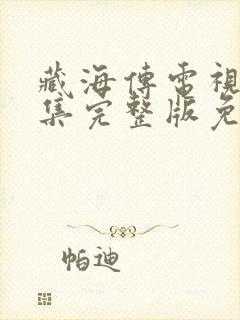 藏海傳電視
集完整版免
帕迪